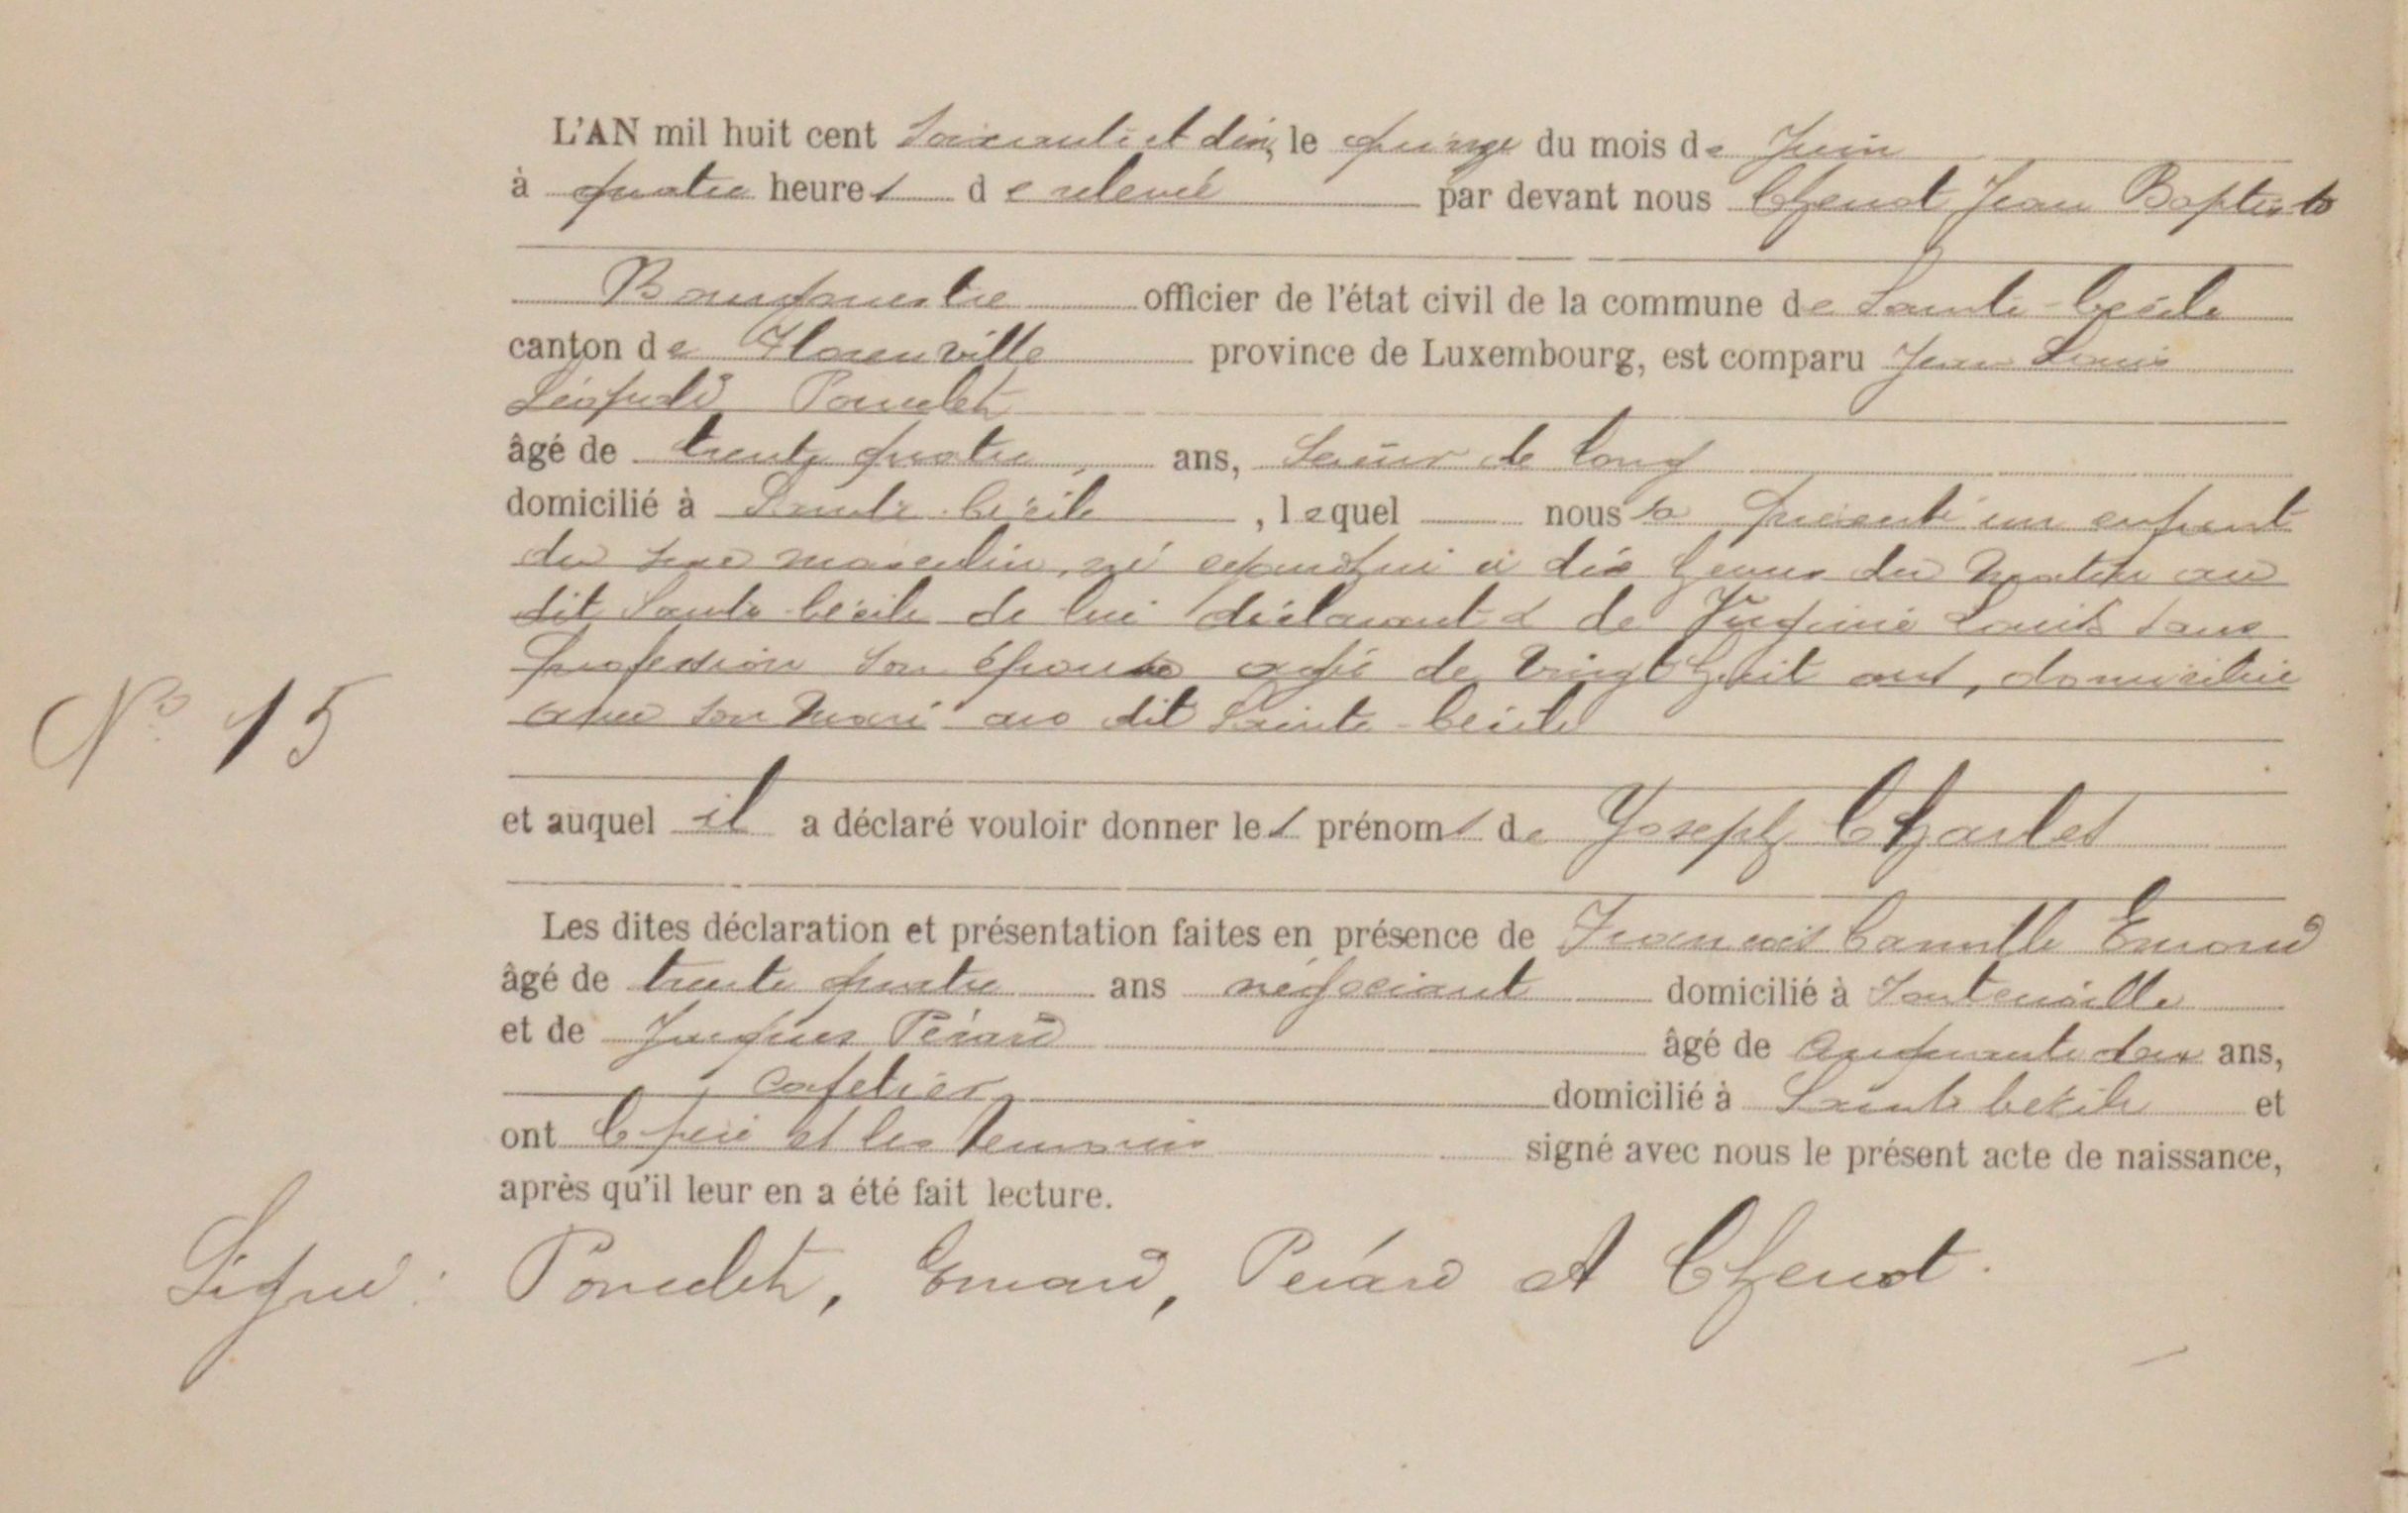 L'AN mil huit cent Soixante et dix, le quinze du mois de Juin
à quatre heures de relevé par devant nous Chenot Jean Baptiste
Bourgmestre officier de l'état civil de la commune de Sainte-Cécile
canton de Florenville province de Luxembourg, est comparu Jean Louis
Léopold Poncelet
âgé de trente quatre ans, Scieur de long
domicilié à Sainte-Cécile, lequel nous a présenté un enfant
du sexe masculin, né aujourd'hui à dix heures du matin au
dit Sainte-Cécile de lui déclarant & de Virginie Louis sans
profession son épouse agée de vingt huit ans, domiciliée
avec son mari au dit Sainte-Cécile
N° 15
et auquel il a déclaré vouloir donner les prénoms de Joseph Charles
Les dites déclaration et présentation faites en présence de François Camille Emond
âgé de trente quatre ans négociant domicilié à Fontenoille
et de Jacques Pérard âgé de Cinquante deux ans,
Cafetier domicilié à Sainte Cécile et
ont le père et les témoins signé avec nous le présent acte de naissance,
après qu'il leur en a été fait lecture.
Signé : Poncelet, Emond, Pérard et Chenot.